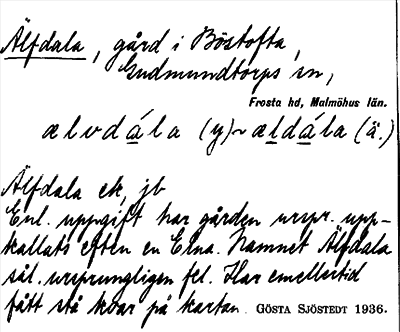 Älfdala, gård i Böstofta,
Gudmundtorps sn,
Frosta hd, Malmöhus län.
ælvdála (y) ~ ældála (ä.)
Älfdala ek, jb
Enl. uppgift har gården urspr. upp-
kallats efter en Elna. Namnet Älfdala
sål. ursprungligen fel. Har emellertid
fått stå kvar på kartan. GÖSTA SJÖSTEDT 1936.